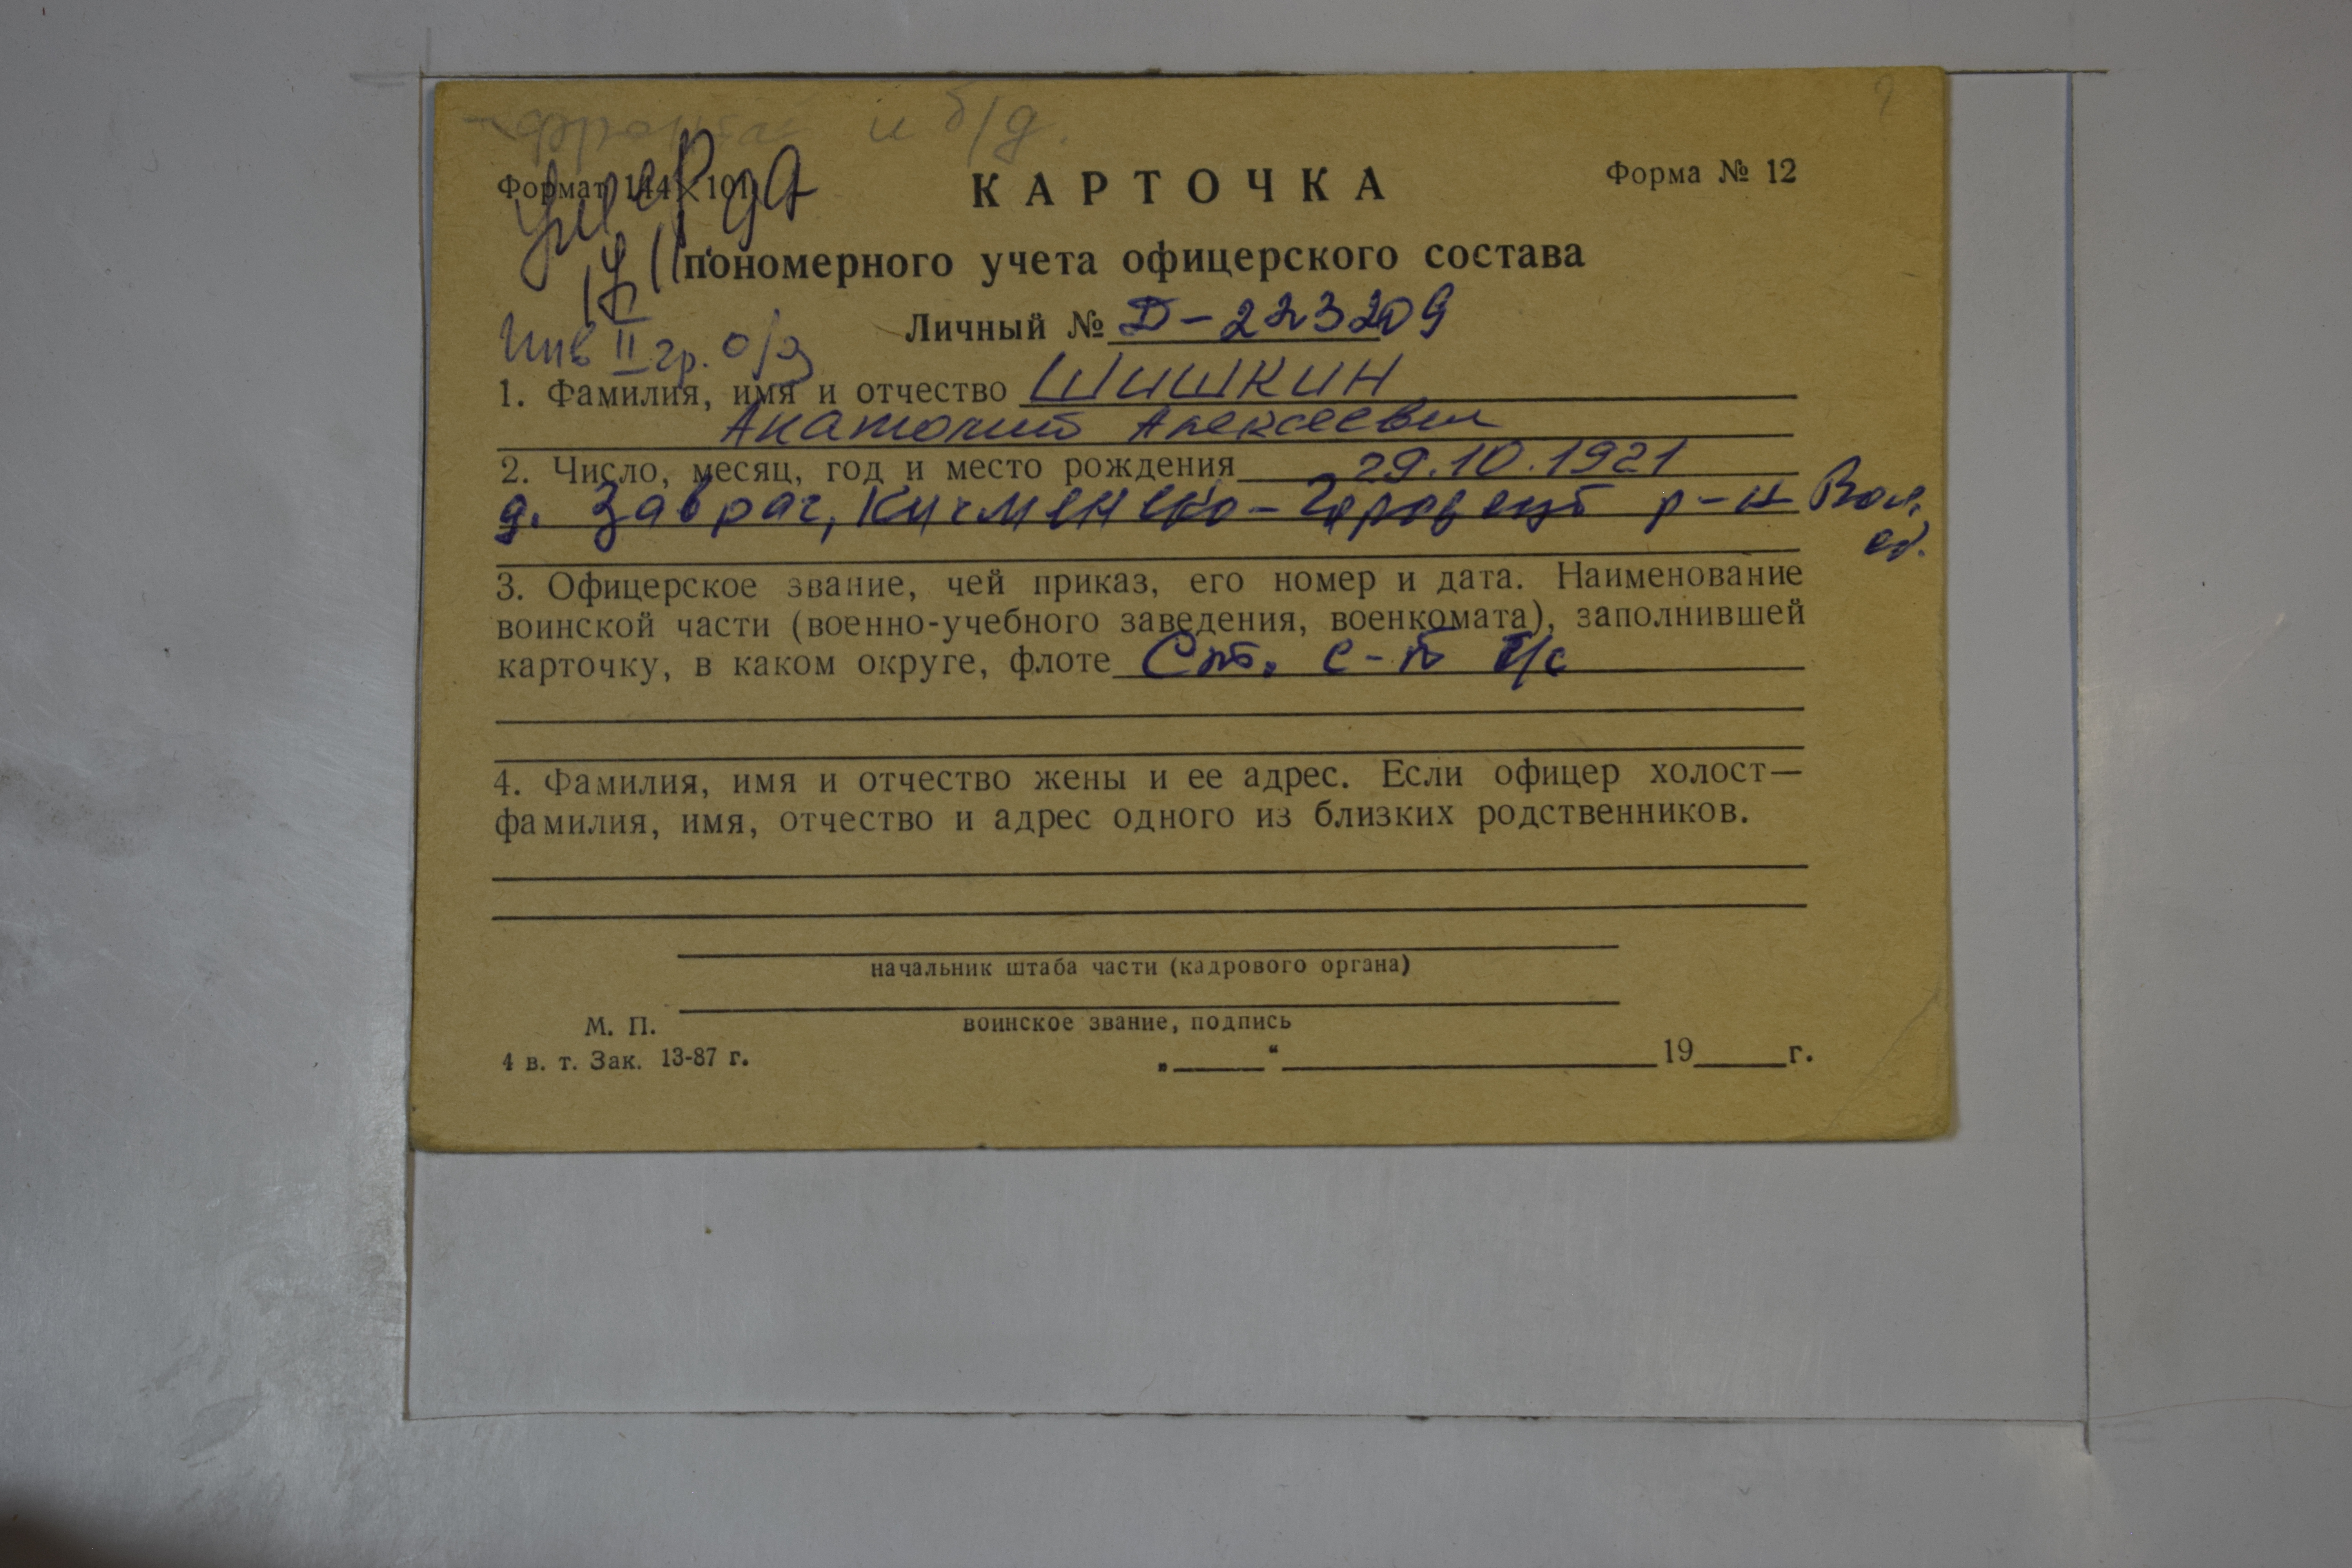 и б/д.
Формат 144×101
умер да
КАРТОЧКА
Форма № 12
пономерного учета офицерского состава
Личный № Д-223209
Инв II гр. о/з
1. Фамилия, имя и отчество Шишкин
Анатолий Алексеевич
2. Число, месяц, год и место рождения 29.10.1921
д. Заврач, Кичменгско-Городецк р-н Вол.
об.
3. Офицерское звание, чей приказ, его номер и дата. Наименование
воинской части (военно-учебного заведения, военкомата), заполнившей
карточку, в каком округе, флоте Ст. с-т т/с
4. Фамилия, имя и отчество жены и ее адрес. Если офицер холост—
фамилия, имя, отчество и адрес одного из близких родственников.
начальник штаба части (кадрового органа)
воинское звание, подпись
М. П.
4 в. т. Зак. 13-87 г.
„ “ 19 г.